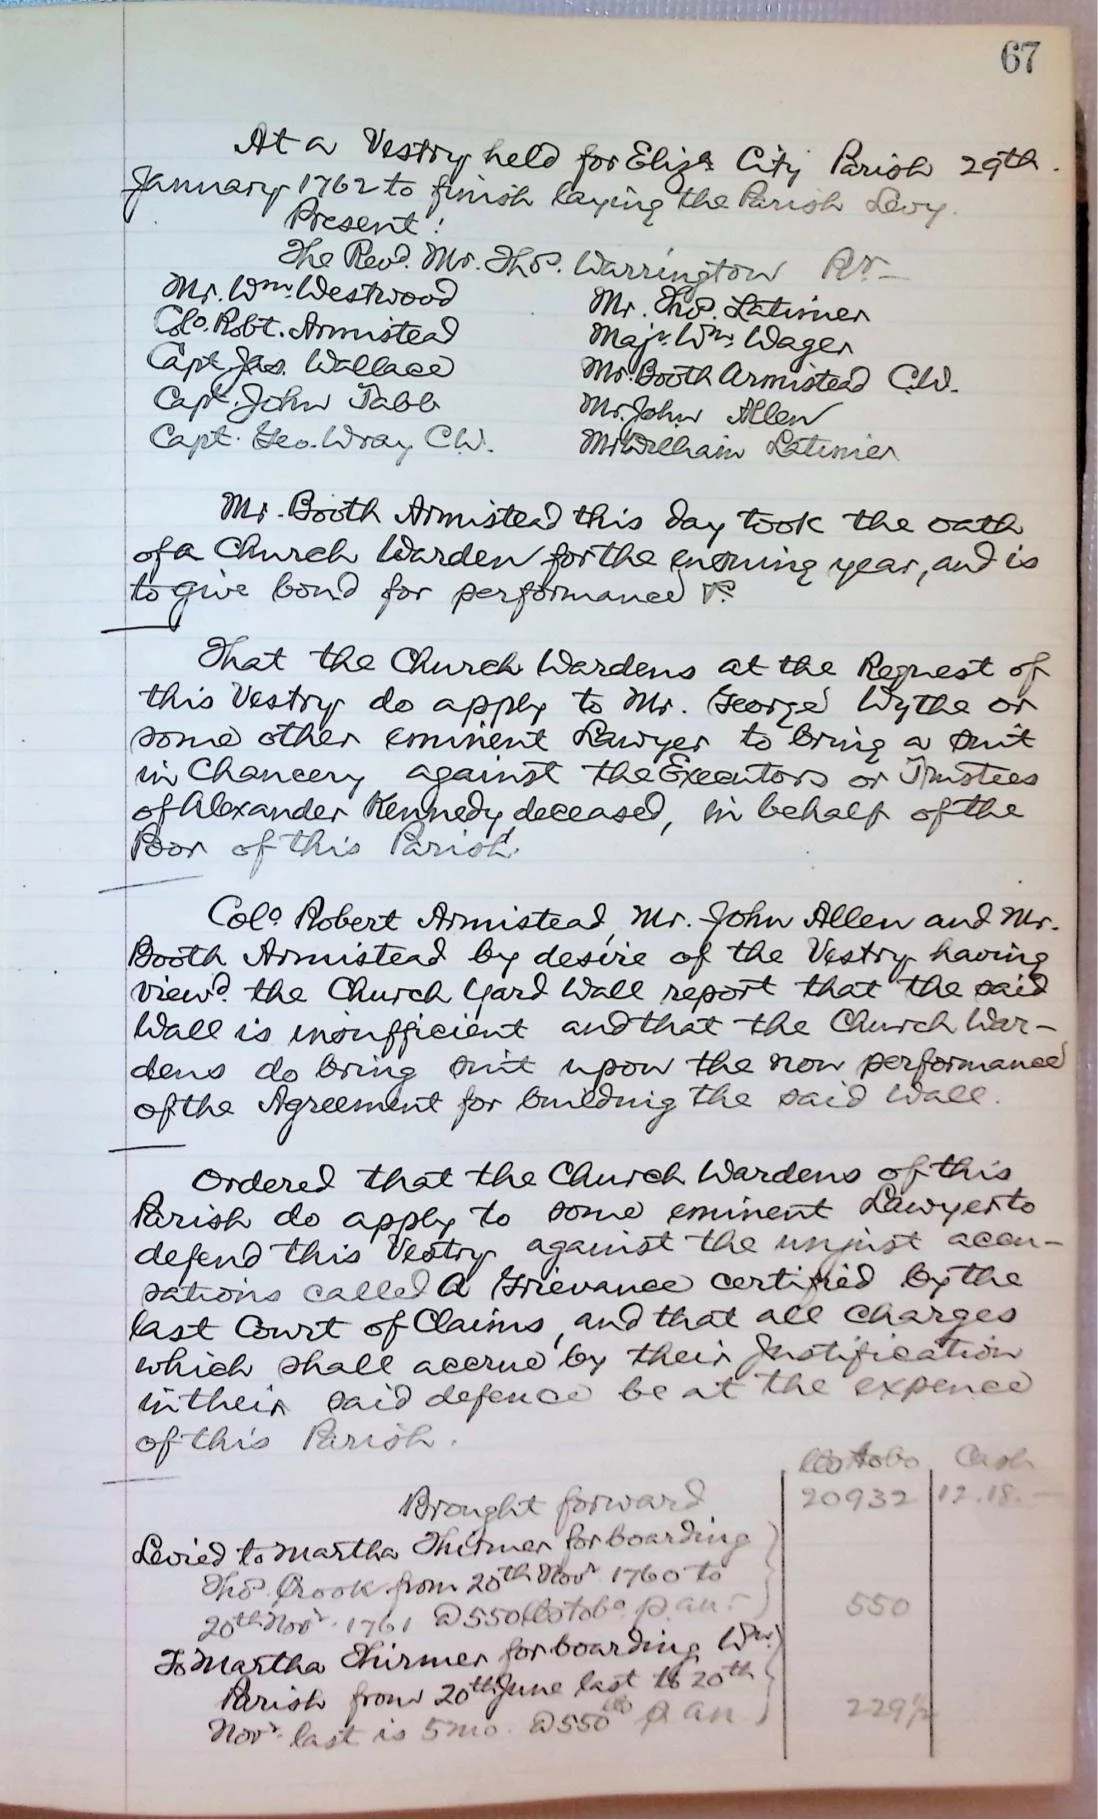 67
At a Vestry held for Elizᵃ City Parish 29th.
January 1762 to finish laying the Parish Levy.
Present:
The Revᵈ. Mr. Thoˢ. Warrington Rʳ—
Mr. Wᵐ. Westwood Mr. Thoˢ. Latimer
Colᵒ. Robt. Armistead Majʳ. Wᵐ. Wager
Capt. Jas. Wallace Mr. Booth Armistead C.W.
Capt. John Tabb Mr. John Allen
Capt. Geo. Wray C.W. Mr William Latimer
Mr. Booth Armistead this day took the oath
of a Church Warden for the ensuing year, and is
to give bond for performance
That the Church Wardens at the Request of
this Vestry do apply to Mr. George Wythe or
some other eminent Lawyer to bring a suit
in Chancery against the Executors or Trustees
of Alexander Kennedy, deceased, in behalf of the
Poor of this Parish.
Colᵒ Robert Armistead, Mr. John Allen and Mr.
Booth Armistead by desire of the Vestry having
viewᵈ. the Church Yard Wall report that the said
Wall is insufficient and that the Church War-
dens do bring suit upon the non performance
of the Agreement for building the said Wall.
Ordered that the Church Wardens of this
Parish do apply to some eminent Lawyer to
defend this Vestry against the unjust accu-
sations called A Grievance certified by the
last Court of Claims, and that all charges
which shall accrue by their Justification
in their said defence be at the expence
of this Parish.
lbs tobo Cash
Brought forward 20932 12.18.—
Levied to Martha Thirmer for boarding
Thoˢ. Crook from 20th Novʳ 1760 to
20th Novʳ. 1761 @ 550 lbs tobᵒ. p anˢ. 550
To Martha Thirmer for boarding Wᵐ.
Parish from 20th June last to 20th
Novʳ. last is 5 mo. @ 550 lbs p an 229½